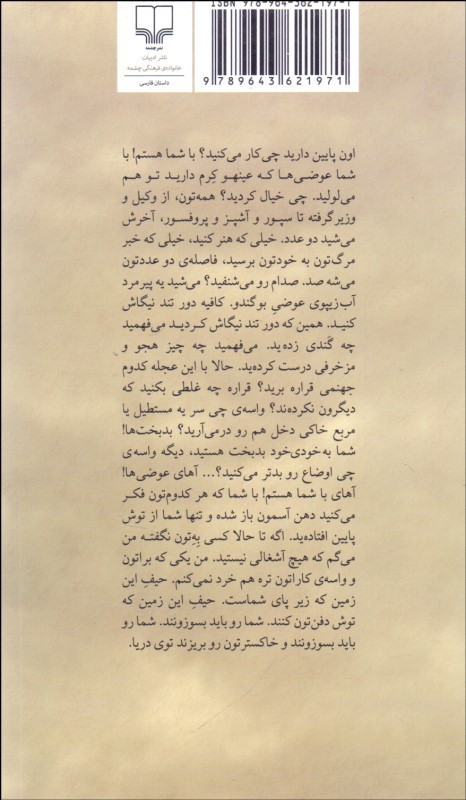 ISBN 978-964-362-197-1
9 789643 621971
نشر چشمه
ناشر ادبیات:
خانواده‌ی فرهنگی چشمه
داستان فارسی
اون پایین دارید چی‌کار می‌کنید؟ با شما هستم! با
شما عوضی‌ها که عینهو کِرم دارید تو هم
می‌لولید. چی خیال کردید؟ همه‌تون، از وکیل و
وزیر گرفته تا سپور و آشپز و پروفسور، آخرش
می‌شید دو عدد. خیلی که هنر کنید، خیلی که خبر
مرگ‌تون به خودتون برسید، فاصله‌ی دو عددتون
می‌شه صد. صدام رو می‌شنفید؟ می‌شید یه پیرمرد
آب‌زیپوی عوضیِ بوگندو. کافیه دور تند نیگاش
کنید. همین که دور تند نیگاش کردید می‌فهمید
چه گندی زده‌ید. می‌فهمید چه چیز هجو و
مزخرفی درست کرده‌ید. حالا با این عجله کدوم
جهنمی قراره برید؟ قراره چه غلطی بکنید که
دیگرون نکرده‌ند؟ واسه‌ی چی سر یه مستطیل یا
مربع خاکی دخل هم رو درمی‌آرید؟ بدبخت‌ها!
شما به‌خودی‌خود بدبخت هستید، دیگه واسه‌ی
چی اوضاع رو بدتر می‌کنید؟... آهای عوضی‌ها!
آهای با شما هستم! با شما که هر کدوم‌تون فکر
می‌کنید دهن آسمون باز شده و تنها شما از توش
پایین افتاده‌ید. اگه تا حالا کسی بِه‌تون نگفته من
می‌گم که هیچ آشغالی نیستید. من یکی که براتون
و واسه‌ی کاراتون تره هم خرد نمی‌کنم. حیفِ این
زمین که زیر پای شماست. حیفِ این زمین که
توش دفن‌تون کنند. شما رو باید بسوزونند. شما رو
باید بسوزونند و خاکسترتون رو بریزند توی دریا.